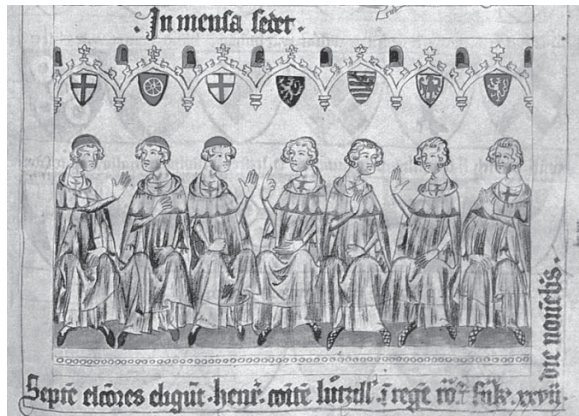 In mensa sedet.
Septē elc̄ores eligūt henr̄. comitē luczill'. ī regē ro͞r. xxvii.
die novēbris.